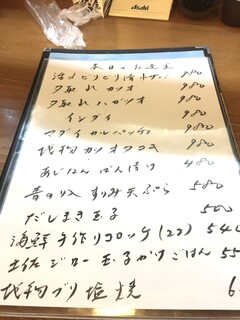 Asahi
本日のお造里
980
夕取れカツオ 980
夕取れハガツオ 980
イシダイ 980
マダイ カルパッチョ 980
地物カツオタタキ 980
あじなんばん漬け 480
昔ながらのすりみ天ぷら 580
だしまき玉子 500
海鮮手作りコロッケ(2コ) 540
土佐ジロー玉子かけごはん 55
地物ブリ塩焼 6